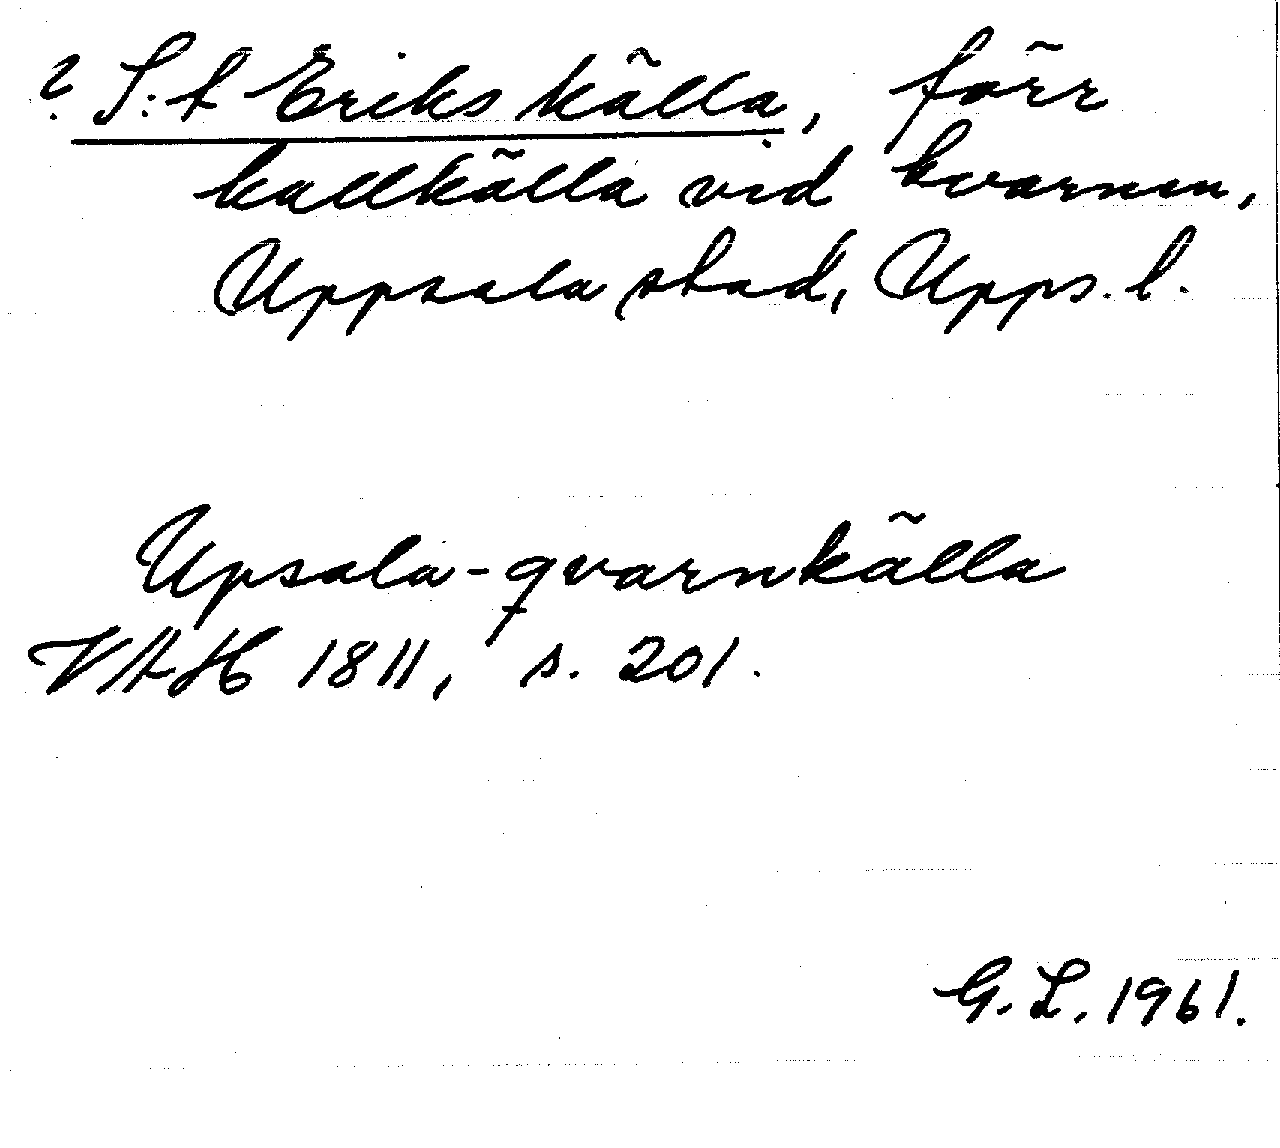 ? S:t Eriks källa, förr
kallkälla vid kvarnen,
Uppsala stad, Upps. l.
Upsala-qvarnkälla
VAH 1811, s. 201.
G. L. 1961.